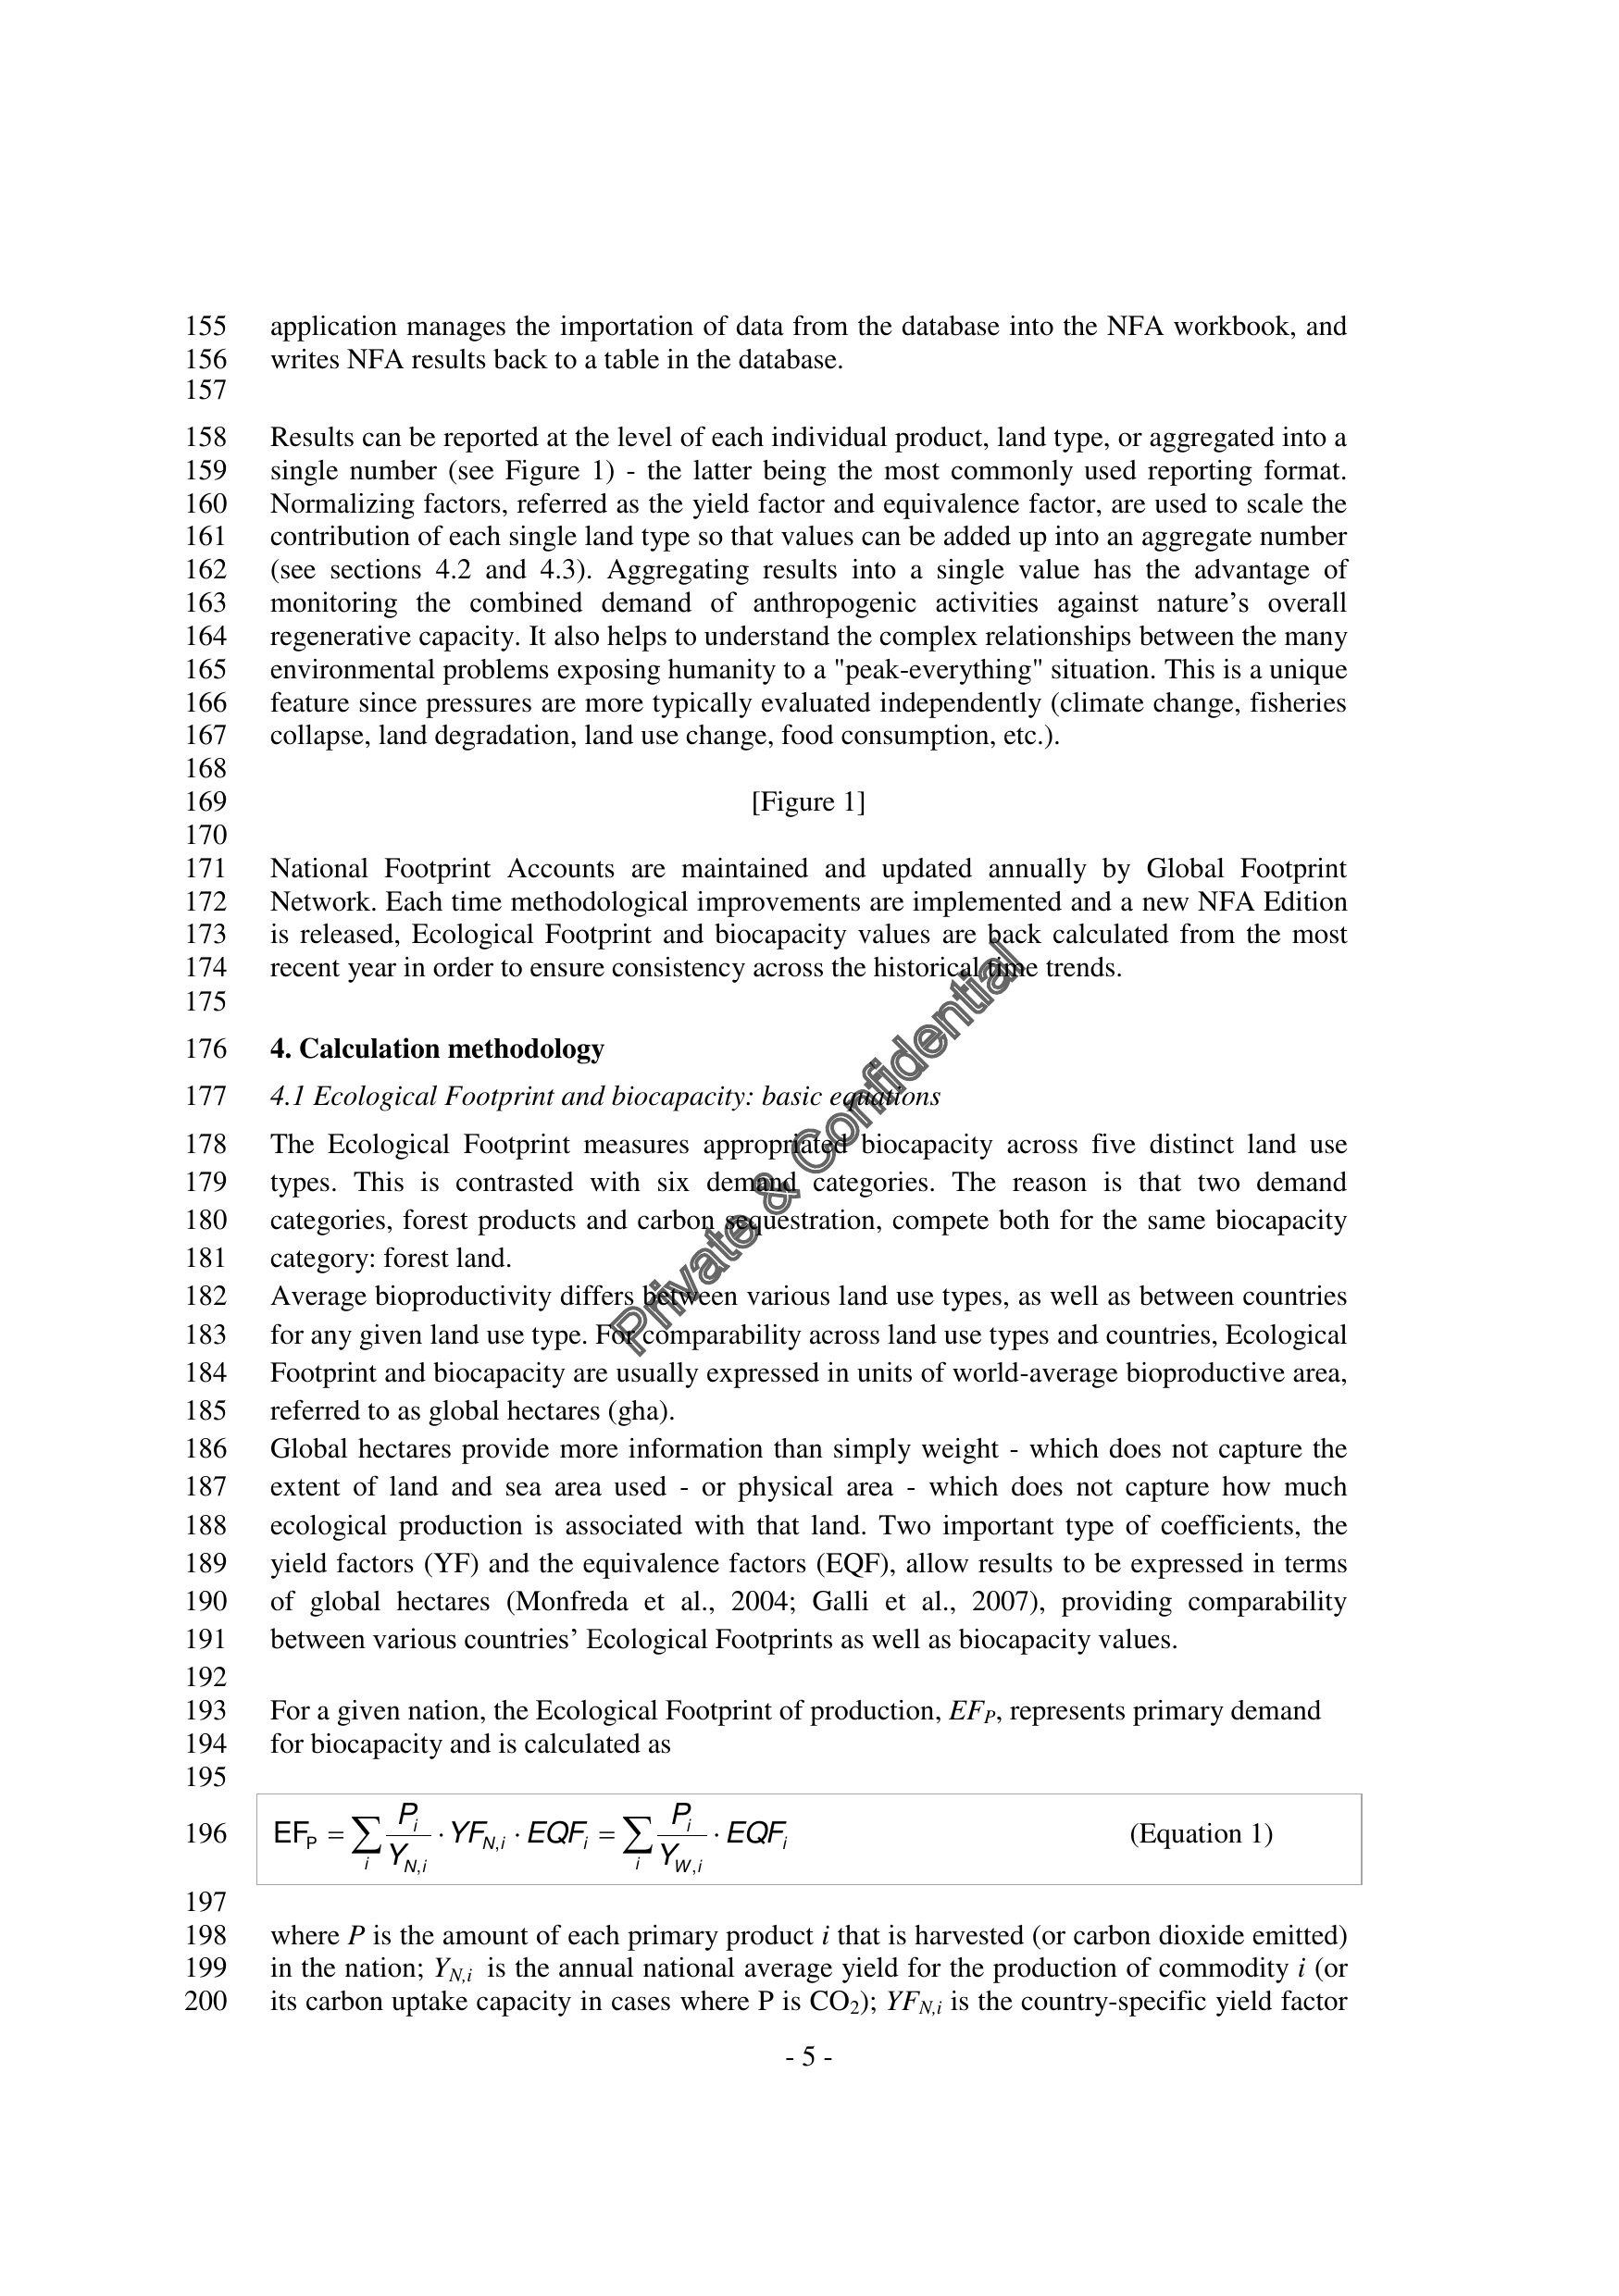 155 application manages the importation of data from the database into the NFA workbook, and
156 writes NFA results back to a table in the database.
157
158 Results can be reported at the level of each individual product, land type, or aggregated into a
159 single number (see Figure 1) - the latter being the most commonly used reporting format.
160 Normalizing factors, referred as the yield factor and equivalence factor, are used to scale the
161 contribution of each single land type so that values can be added up into an aggregate number
162 (see sections 4.2 and 4.3). Aggregating results into a single value has the advantage of
163 monitoring the combined demand of anthropogenic activities against nature’s overall
164 regenerative capacity. It also helps to understand the complex relationships between the many
165 environmental problems exposing humanity to a "peak-everything" situation. This is a unique
166 feature since pressures are more typically evaluated independently (climate change, fisheries
167 collapse, land degradation, land use change, food consumption, etc.).
168
169 [Figure 1]
170
171 National Footprint Accounts are maintained and updated annually by Global Footprint
172 Network. Each time methodological improvements are implemented and a new NFA Edition
173 is released, Ecological Footprint and biocapacity values are back calculated from the most
174 recent year in order to ensure consistency across the historical time trends.
175
176 4. Calculation methodology
177 4.1 Ecological Footprint and biocapacity: basic equations
178 The Ecological Footprint measures appropriated biocapacity across five distinct land use
179 types. This is contrasted with six demand categories. The reason is that two demand
180 categories, forest products and carbon sequestration, compete both for the same biocapacity
181 category: forest land.
182 Average bioproductivity differs between various land use types, as well as between countries
183 for any given land use type. For comparability across land use types and countries, Ecological
184 Footprint and biocapacity are usually expressed in units of world-average bioproductive area,
185 referred to as global hectares (gha).
186 Global hectares provide more information than simply weight - which does not capture the
187 extent of land and sea area used - or physical area - which does not capture how much
188 ecological production is associated with that land. Two important type of coefficients, the
189 yield factors (YF) and the equivalence factors (EQF), allow results to be expressed in terms
190 of global hectares (Monfreda et al., 2004; Galli et al., 2007), providing comparability
191 between various countries’ Ecological Footprints as well as biocapacity values.
192
193 For a given nation, the Ecological Footprint of production, EF_P, represents primary demand
194 for biocapacity and is calculated as
195
196 EF_P = ∑_i P_i / Y_{N,i} · YF_{N,i} · EQF_i = ∑_i P_i / Y_{W,i} · EQF_i (Equation 1)
197
198 where P is the amount of each primary product i that is harvested (or carbon dioxide emitted)
199 in the nation; Y_{N,i} is the annual national average yield for the production of commodity i (or
200 its carbon uptake capacity in cases where P is CO₂); YF_{N,i} is the country-specific yield factor
- 5 -
Private & Confidential